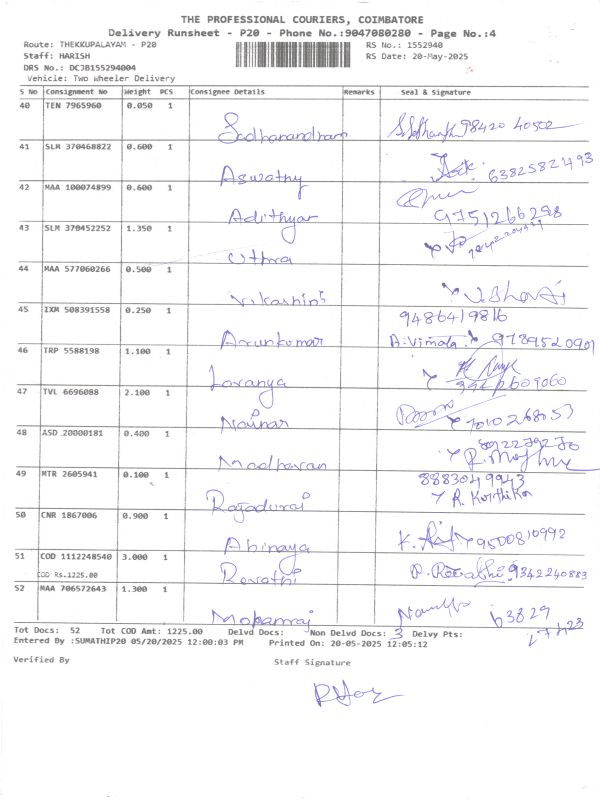 THE PROFESSIONAL COURIERS, COIMBATORE
Delivery Runsheet - P20 - Phone No.:9047080280 - Page No.:4
Route: THEKKUPALAYAM - P20 RS No.: 1552940
Staff: HARISH RS Date: 20-May-2025
DRS No.: DCJB155294004
Vehicle: Two Wheeler Delivery
S No Consignment No Weight PCS Consignee Details Remarks Seal & Signature
40 TEN 7965960 0.050 1
Sadhanandham 98420 40502
41 SLM 370468822 0.600 1
Aswathy 6382582493
42 MAA 100074899 0.600 1
Adithyar 9751266298
43 SLM 370452252 1.350 1
Uthra
44 MAA 577060266 0.500 1
Vikashini
45 IXM 508391558 0.250 1 9486419816
Arunkumar A. Vimala 9789520901
46 TRP 5588198 1.100 1
Lavanya
47 TVL 6696088 2.100 1
Nainar
48 ASD 20000181 0.400 1
Madhavan
49 MTR 2605941 0.100 1 8883049943
Rajadurai R. Kirthika
50 CNR 1867006 0.900 1
Abinaya 9500810992
51 COD 1112248540 3.000 1
COD Rs.1225.00 Revathi P. Revathi 9342240883
52 MAA 706572643 1.300 1
Mohanraj 63829
Tot Docs: 52 Tot COD Amt: 1225.00 Delvd Docs: Non Delvd Docs: 3 Delvy Pts:
Entered By :SUMATHIP20 05/20/2025 12:00:03 PM Printed On: 20-05-2025 12:05:12
Verified By Staff Signature